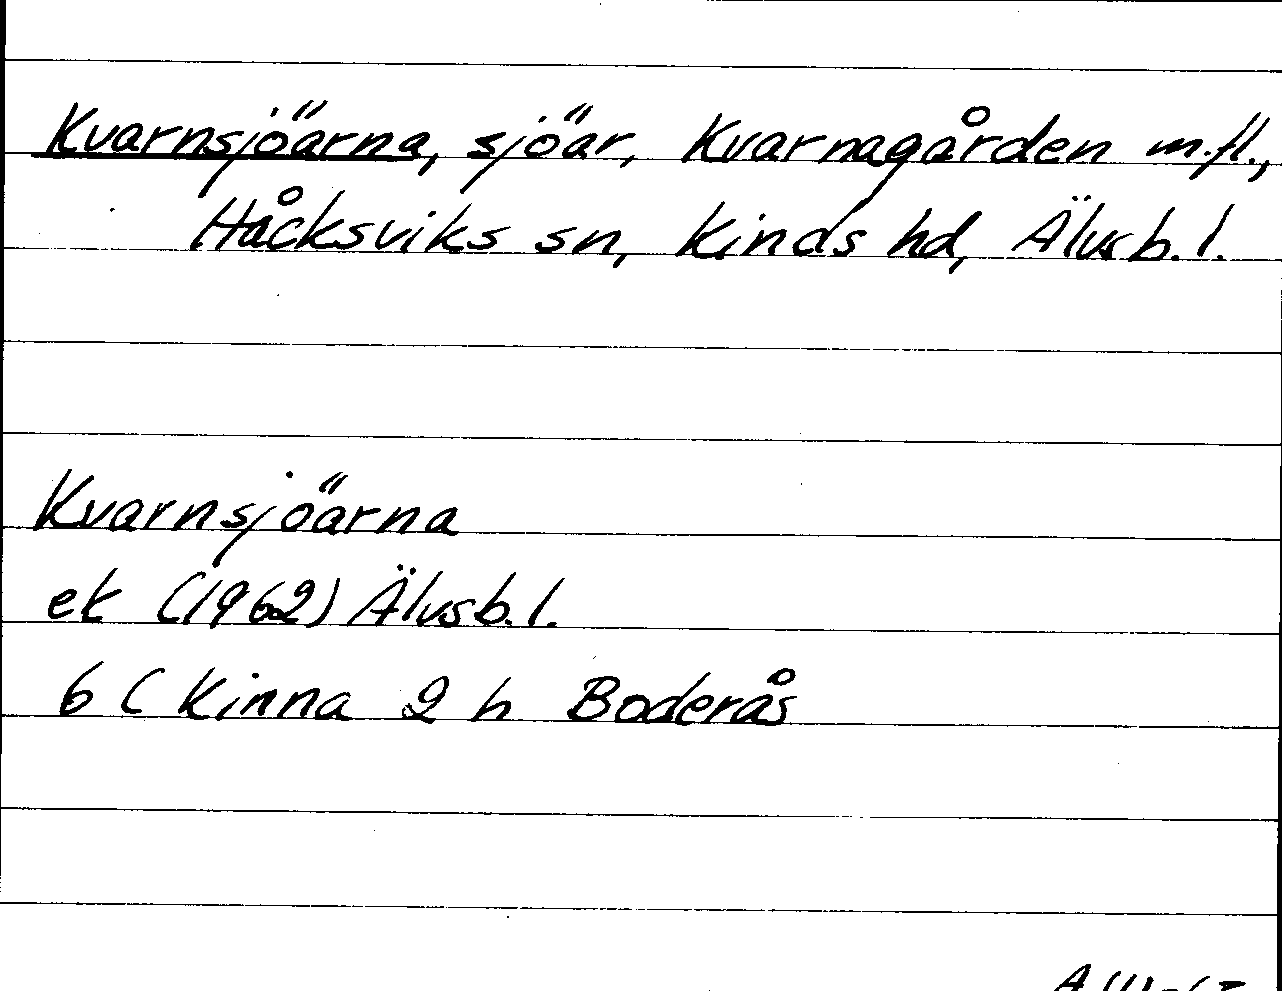 Kvarnsjöarna, sjöar, Kvarnagården m.fl.,
Håcksviks sn, Kinds hd, Älvsb. l.
Kvarnsjöarna
ek (1962) Älvsb. l.
6 C Kinna 2 h Boderås